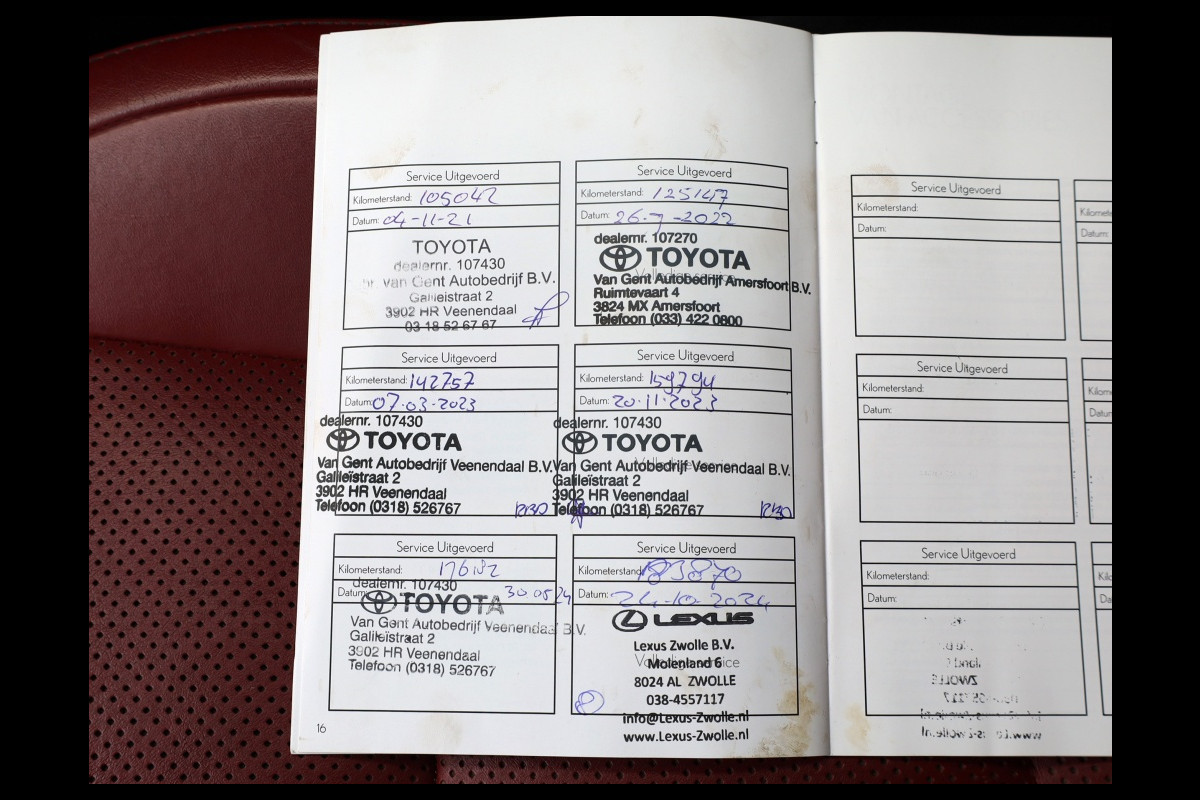 Service Uitgevoerd
Kilometerstand: 105042
Datum: 04-11-21
TOYOTA
dealernr. 107430
van Gent Autobedrijf B.V.
Galileistraat 2
3902 HR Veenendaal
03 18 52 67 67
Service Uitgevoerd
Kilometerstand: 125147
Datum: 26-7-2022
dealernr. 107270
TOYOTA
Van Gent Autobedrijf Amersfoort B.V.
Ruimtevaart 4
3824 MX Amersfoort
Telefoon (033) 422 0800
Service Uitgevoerd
Kilometerstand: 142757
Datum: 07-03-2023
dealernr. 107430
TOYOTA
Van Gent Autobedrijf Veenendaal B.V.
Galileïstraat 2
3902 HR Veenendaal
Telefoon (0318) 526767
Service Uitgevoerd
Kilometerstand: 159794
Datum: 20-11-2023
dealernr. 107430
TOYOTA
Van Gent Autobedrijf Veenendaal B.V.
Galileïstraat 2
3902 HR Veenendaal
Telefoon (0318) 526767
Service Uitgevoerd
Kilometerstand:
Datum: 30 05 24
dealernr. 107430
TOYOTA
Van Gent Autobedrijf Veenendaal B.V.
Galileïstraat 2
3902 HR Veenendaal
Telefoon (0318) 526767
Service Uitgevoerd
Kilometerstand: 183870
Datum: 24-10-2024
LEXUS
Lexus Zwolle B.V.
Volledige service
Molenland 6
8024 AL ZWOLLE
038-4557117
info@Lexus-Zwolle.nl
www.Lexus-Zwolle.nl
16
Service Uitgevoerd
Kilometerstand:
Datum:
Service Uitgevoerd
Kilometerstand:
Datum:
Service Uitgevoerd
Kilometerstand:
Datum: